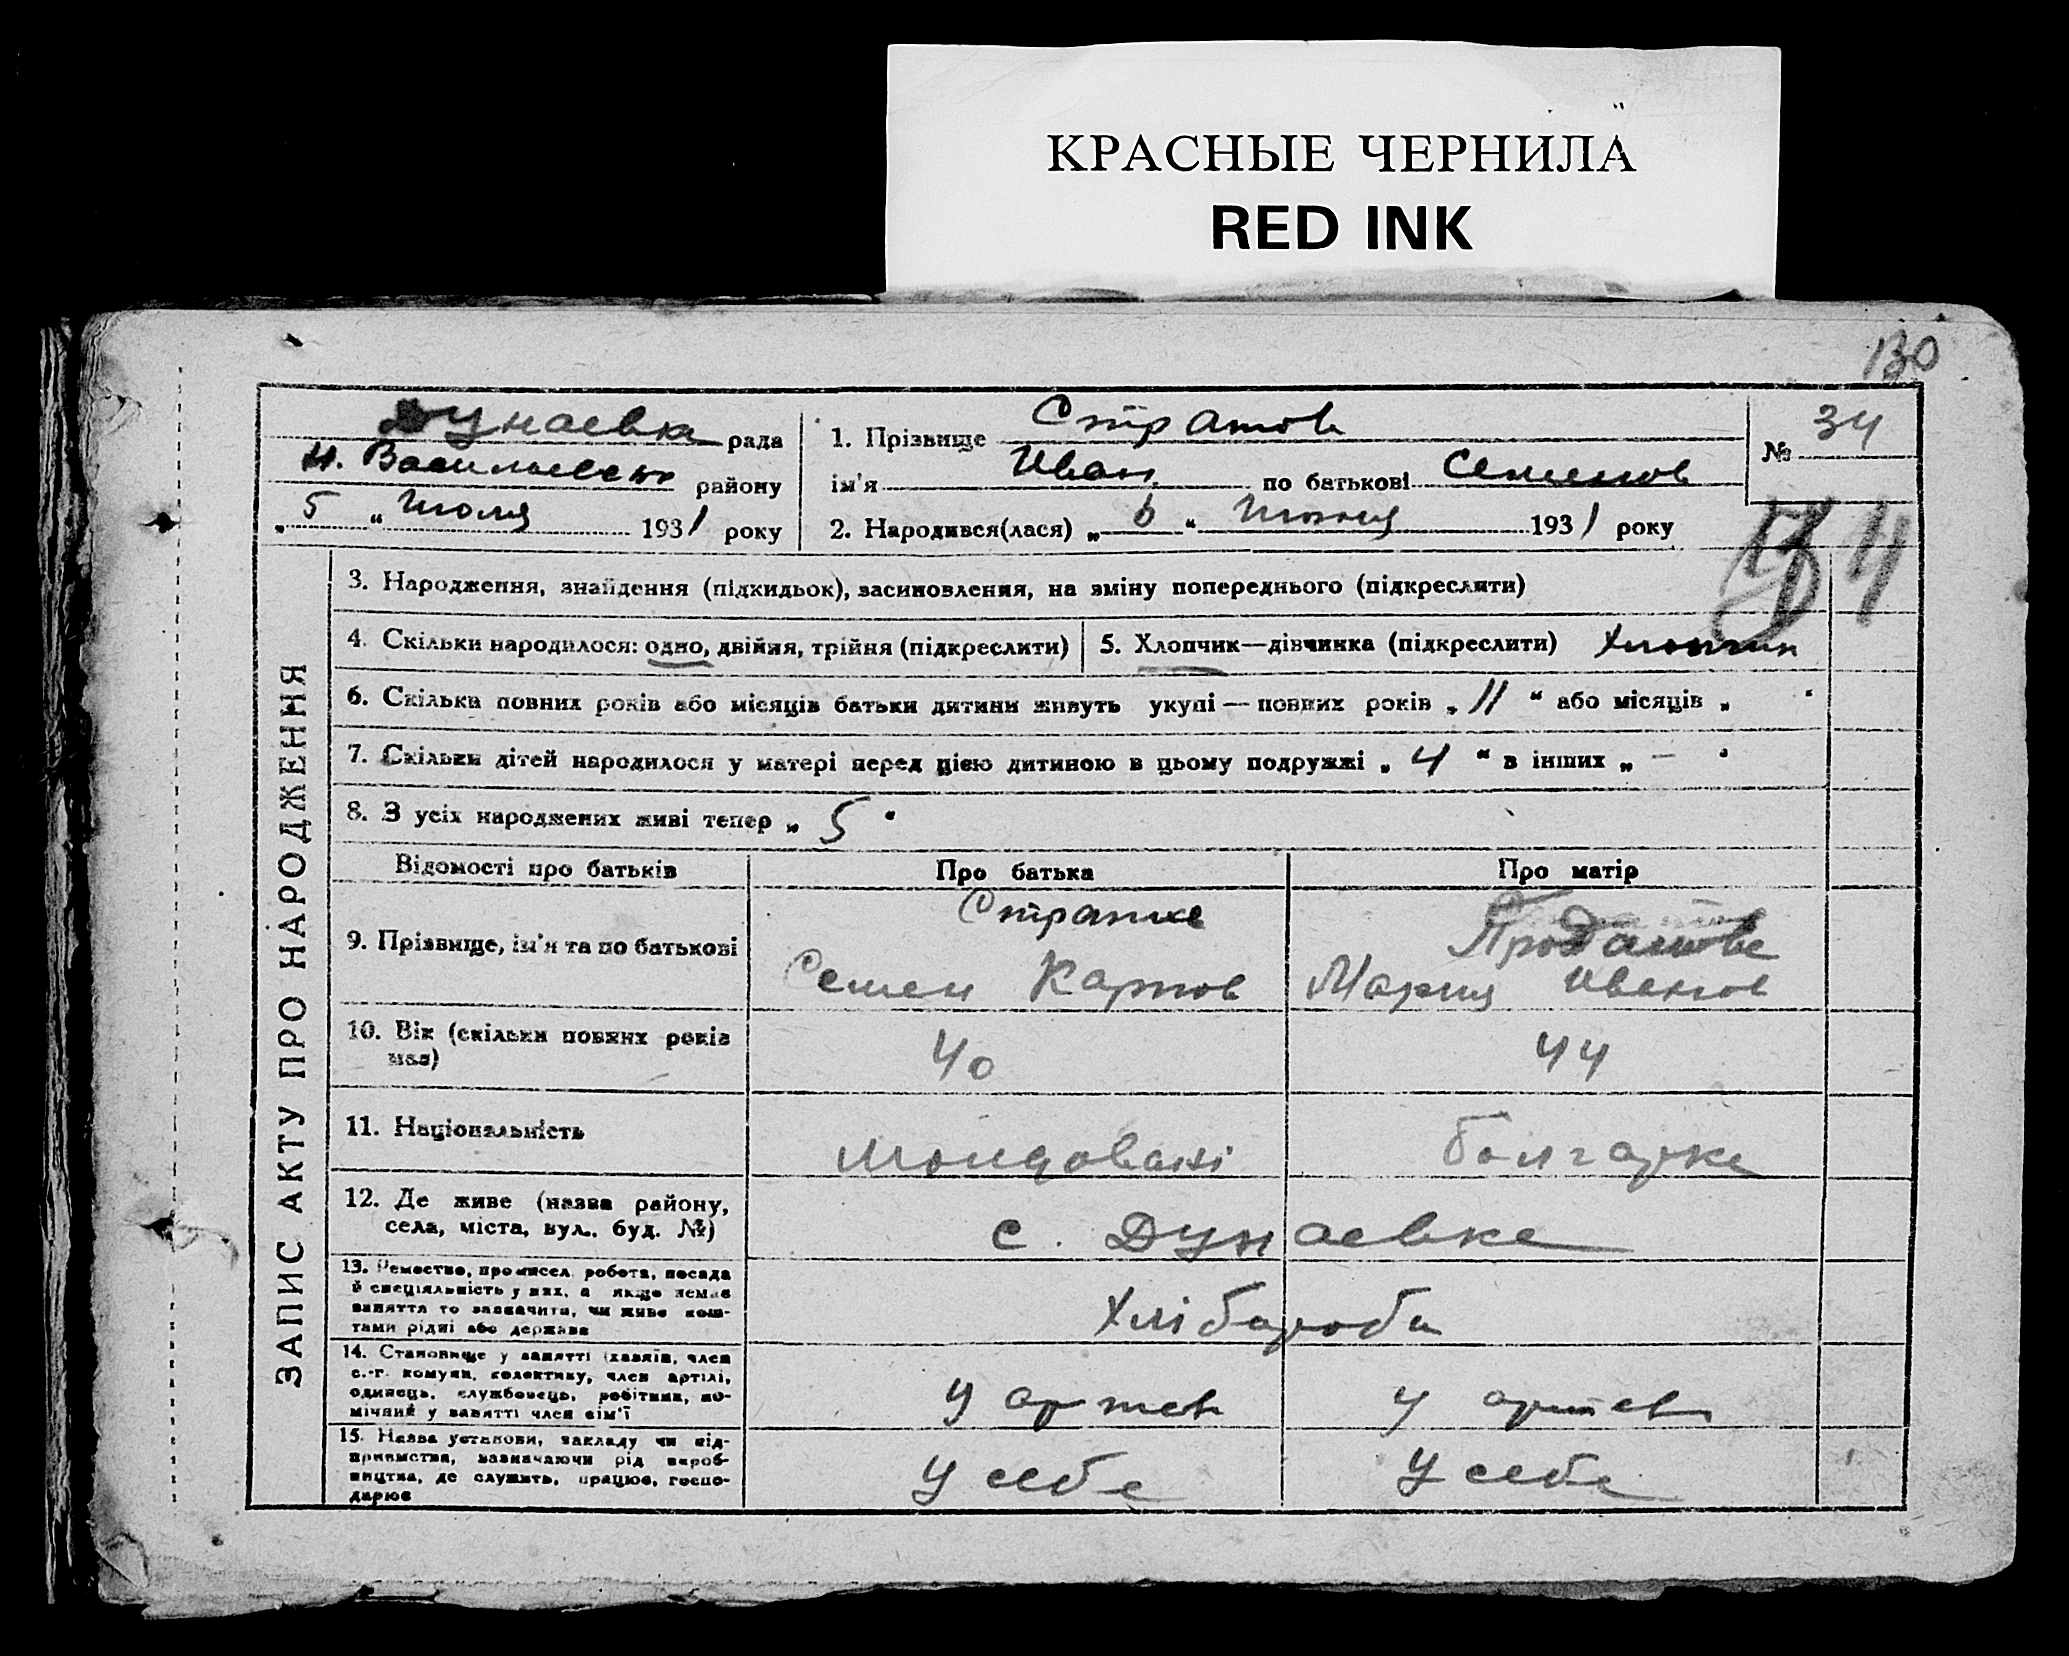 КРАСНЫЕ ЧЕРНИЛА
RED INK
130
Дунаевка рада
Н. Васильевск району
„ 5 “ Июля 1931 року
1. Прізвище Стратов
ім'я Иван по батькові Семенов
2. Народився(лася) „ 6 “ 1931 року
№ 34
ЗАПИС АКТУ ПРО НАРОДЖЕННЯ
3. Народження, знайдення (підкидьок), засиновлення, на зміну попереднього (підкреслити)
4. Скільки народилося: одно, двійня, трійня (підкреслити)
5. Хлопчик—дівчинка (підкреслити) Хлопчик
6. Скільки повних років або місяців батьки дитини живуть укупі — повних років „ 11 “ або місяців „ “
7. Скільки дітей народилося у матері перед цією дитиною в цьому подружжі „ 4 “ в інших „ — “
8. З усіх народжених живі тепер „ 5 “
Відомості про батьків
Про батька
Про матір
9. Прізвище, ім'я та по батькові
Семен Карпов
Мария Иванов
10. Вік (скільки повних років має)
40
44
11. Національність
болгарке
12. Де живе (назва району, села, міста, вул., буд. №)
с. Дунаевке
13. Ремество, промисел, робота, посада й спеціяльність у них, а якщо немає заняття то зазначити, чи живе коштами рідні або держава
Хлібароби
14. Становище у занятті (хазяїн, член с.-г. комуни, колективу, член артілі, одинець, службовець, робітник, помічний у занятті член сім'ї
У артев
у артев
15. Назва установи, закладу чи підприємства, зазначаючи рід виробництва, де служить, працює, господарює
У себе
У себе